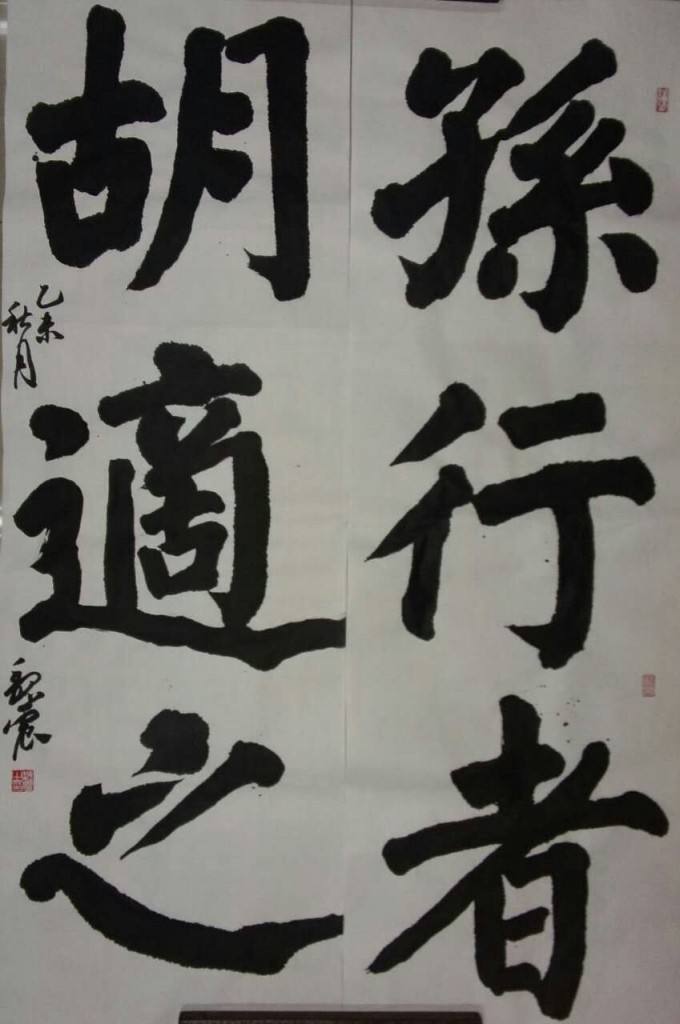 孫行者
胡適之
乙未
秋月